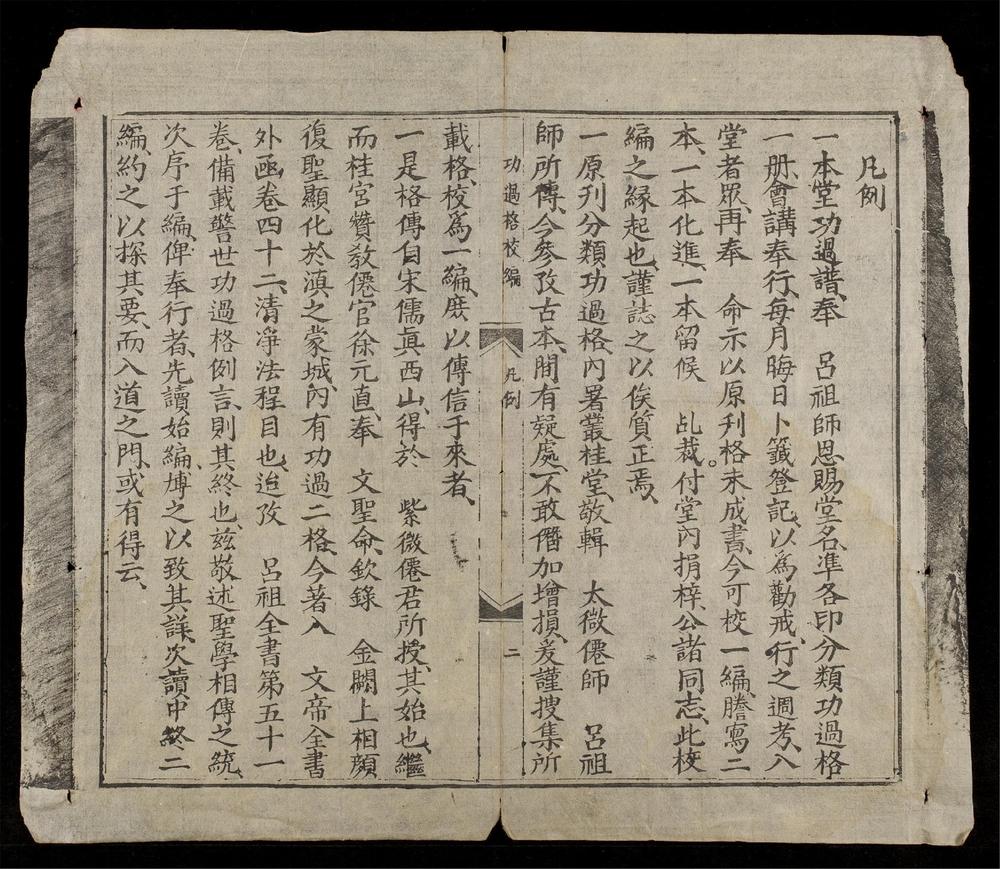 凡例
一本堂功過譜、奉　呂祖師恩賜堂名、準各印分類功過格
一册、會講奉行、每月晦日卜籤登記、以爲勸戒、行之週考、入
堂者眾、再奉　命示以原刋格未成書。今可校一編、謄寫二
本、一本化進、一本留候　乩裁付堂內捐梓、公諸同志、此校
編之緣起也、謹誌之以俟質正焉、
一原刋分類功過格、內署叢桂堂敬輯　太微僊師　呂祖
師所傳、今參攷古本、間有疑處、不敢僭加增損、爰謹搜集所
功過格校編　凡例　二
載格、校爲一編、庶以傳信于來者、
一是格傳自宋儒眞西山、得於　紫微僊君所授、其始也、繼
而桂宮贊敎僊官徐元直、奉　文聖命、欽錄　金闕上相顏
復聖顯化於滇之蒙城、內有功過二格、今著入　文帝全書
外函卷四十二、清凈法程目也、迨攷　呂祖全書第五十一
卷、備載警世功過格例言、則其終也、兹敬述聖學相傳之統、
次序于編、俾奉行者、先讀始編、博之以致其詳、次讀中終二
編、約之以探其要、而入道之門、或有得云、